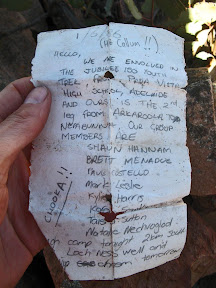 1/5/86
(Mt Collum!!)
HELLO,
WE ARE ENVOLVED IN
THE JUBILEE 150 YOUTH
TREK, FROM PARA VISTA
HIGH SCHOOL, ADELAIDE
AND OURS IS THE 2nd
leg FROM ARKAROOLA TO
NEPABUNNA. OUR GROUP
MEMBERS ARE
SHAUN HANNAM
BRETT MENADUE
PAUL COSTELLO
Mark Leslie
Kylie Harris
Sutton
Natalie
camp tonight 2km South
Loch Ness Well and
tomorrow
CHOOKA!!